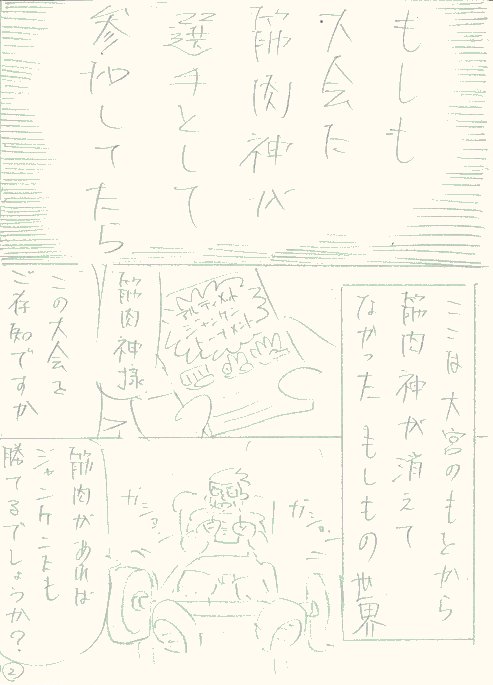 もしも
大会に
筋肉神が
選手として
参加してたら
ここは大宮のもとから
筋肉神が消えて
なかったもしもの世界
アルティメット
ジャンケン
トーナメント
筋肉神様
この大会を
ご存知ですか
ガション
ガション
筋肉があれば
ジャンケンにも
勝てるでしょうか?
2